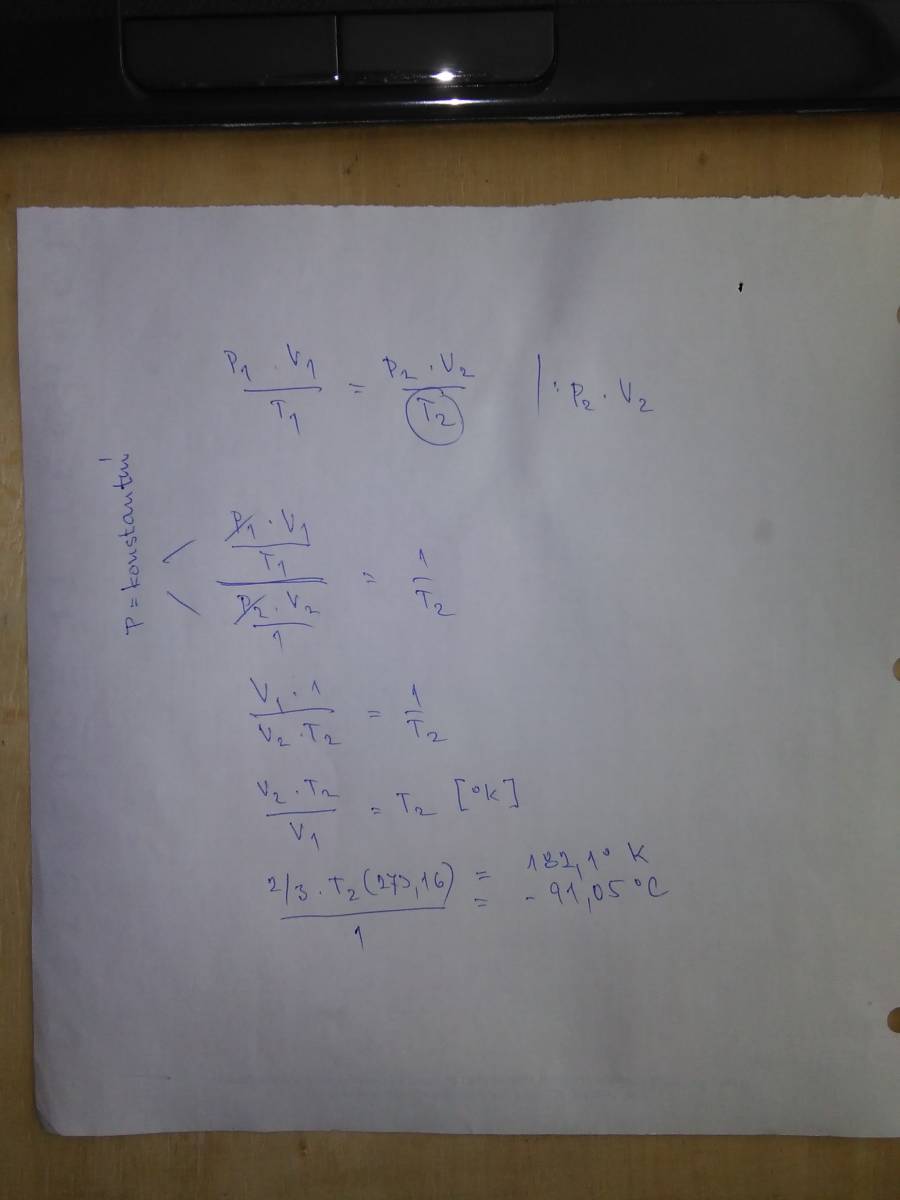 P₁ · V₁ / T₁ = P₂ · V₂ / T₂ | : P₂ · V₂
P = konstantní
(P₁ · V₁ / T₁) / (P₂ · V₂ / 1) = 1 / T₂
V₁ · 1 / V₂ · T₂ = 1 / T₂
V₂ · T₂ / V₁ = T₂ [°K]
2/3 · T₂ (273,16) / 1 = 182,1° K
= - 91,05 °C